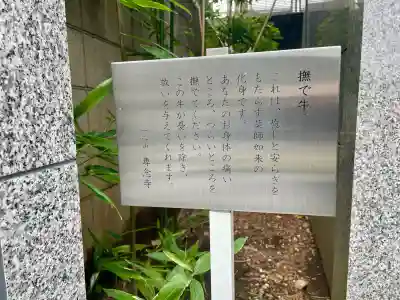 撫で牛
これは、癒しと安らぎを
もたらす薬師如来の
化身です。
あなたのお身体の痛い
ところ、つらいところを
撫でてください。
この牛が憂いを除き、
救いを与えてくれます。
尊念寺